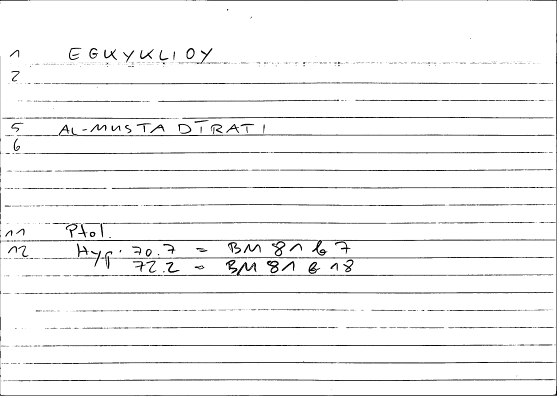 1 EGKYKLIOY
2
5 AL-MUSTADĪRATI
6
11 Ptol.
12 Hyp. 70.7 = BM 81 b 7
72.2 = BM 81 b 18